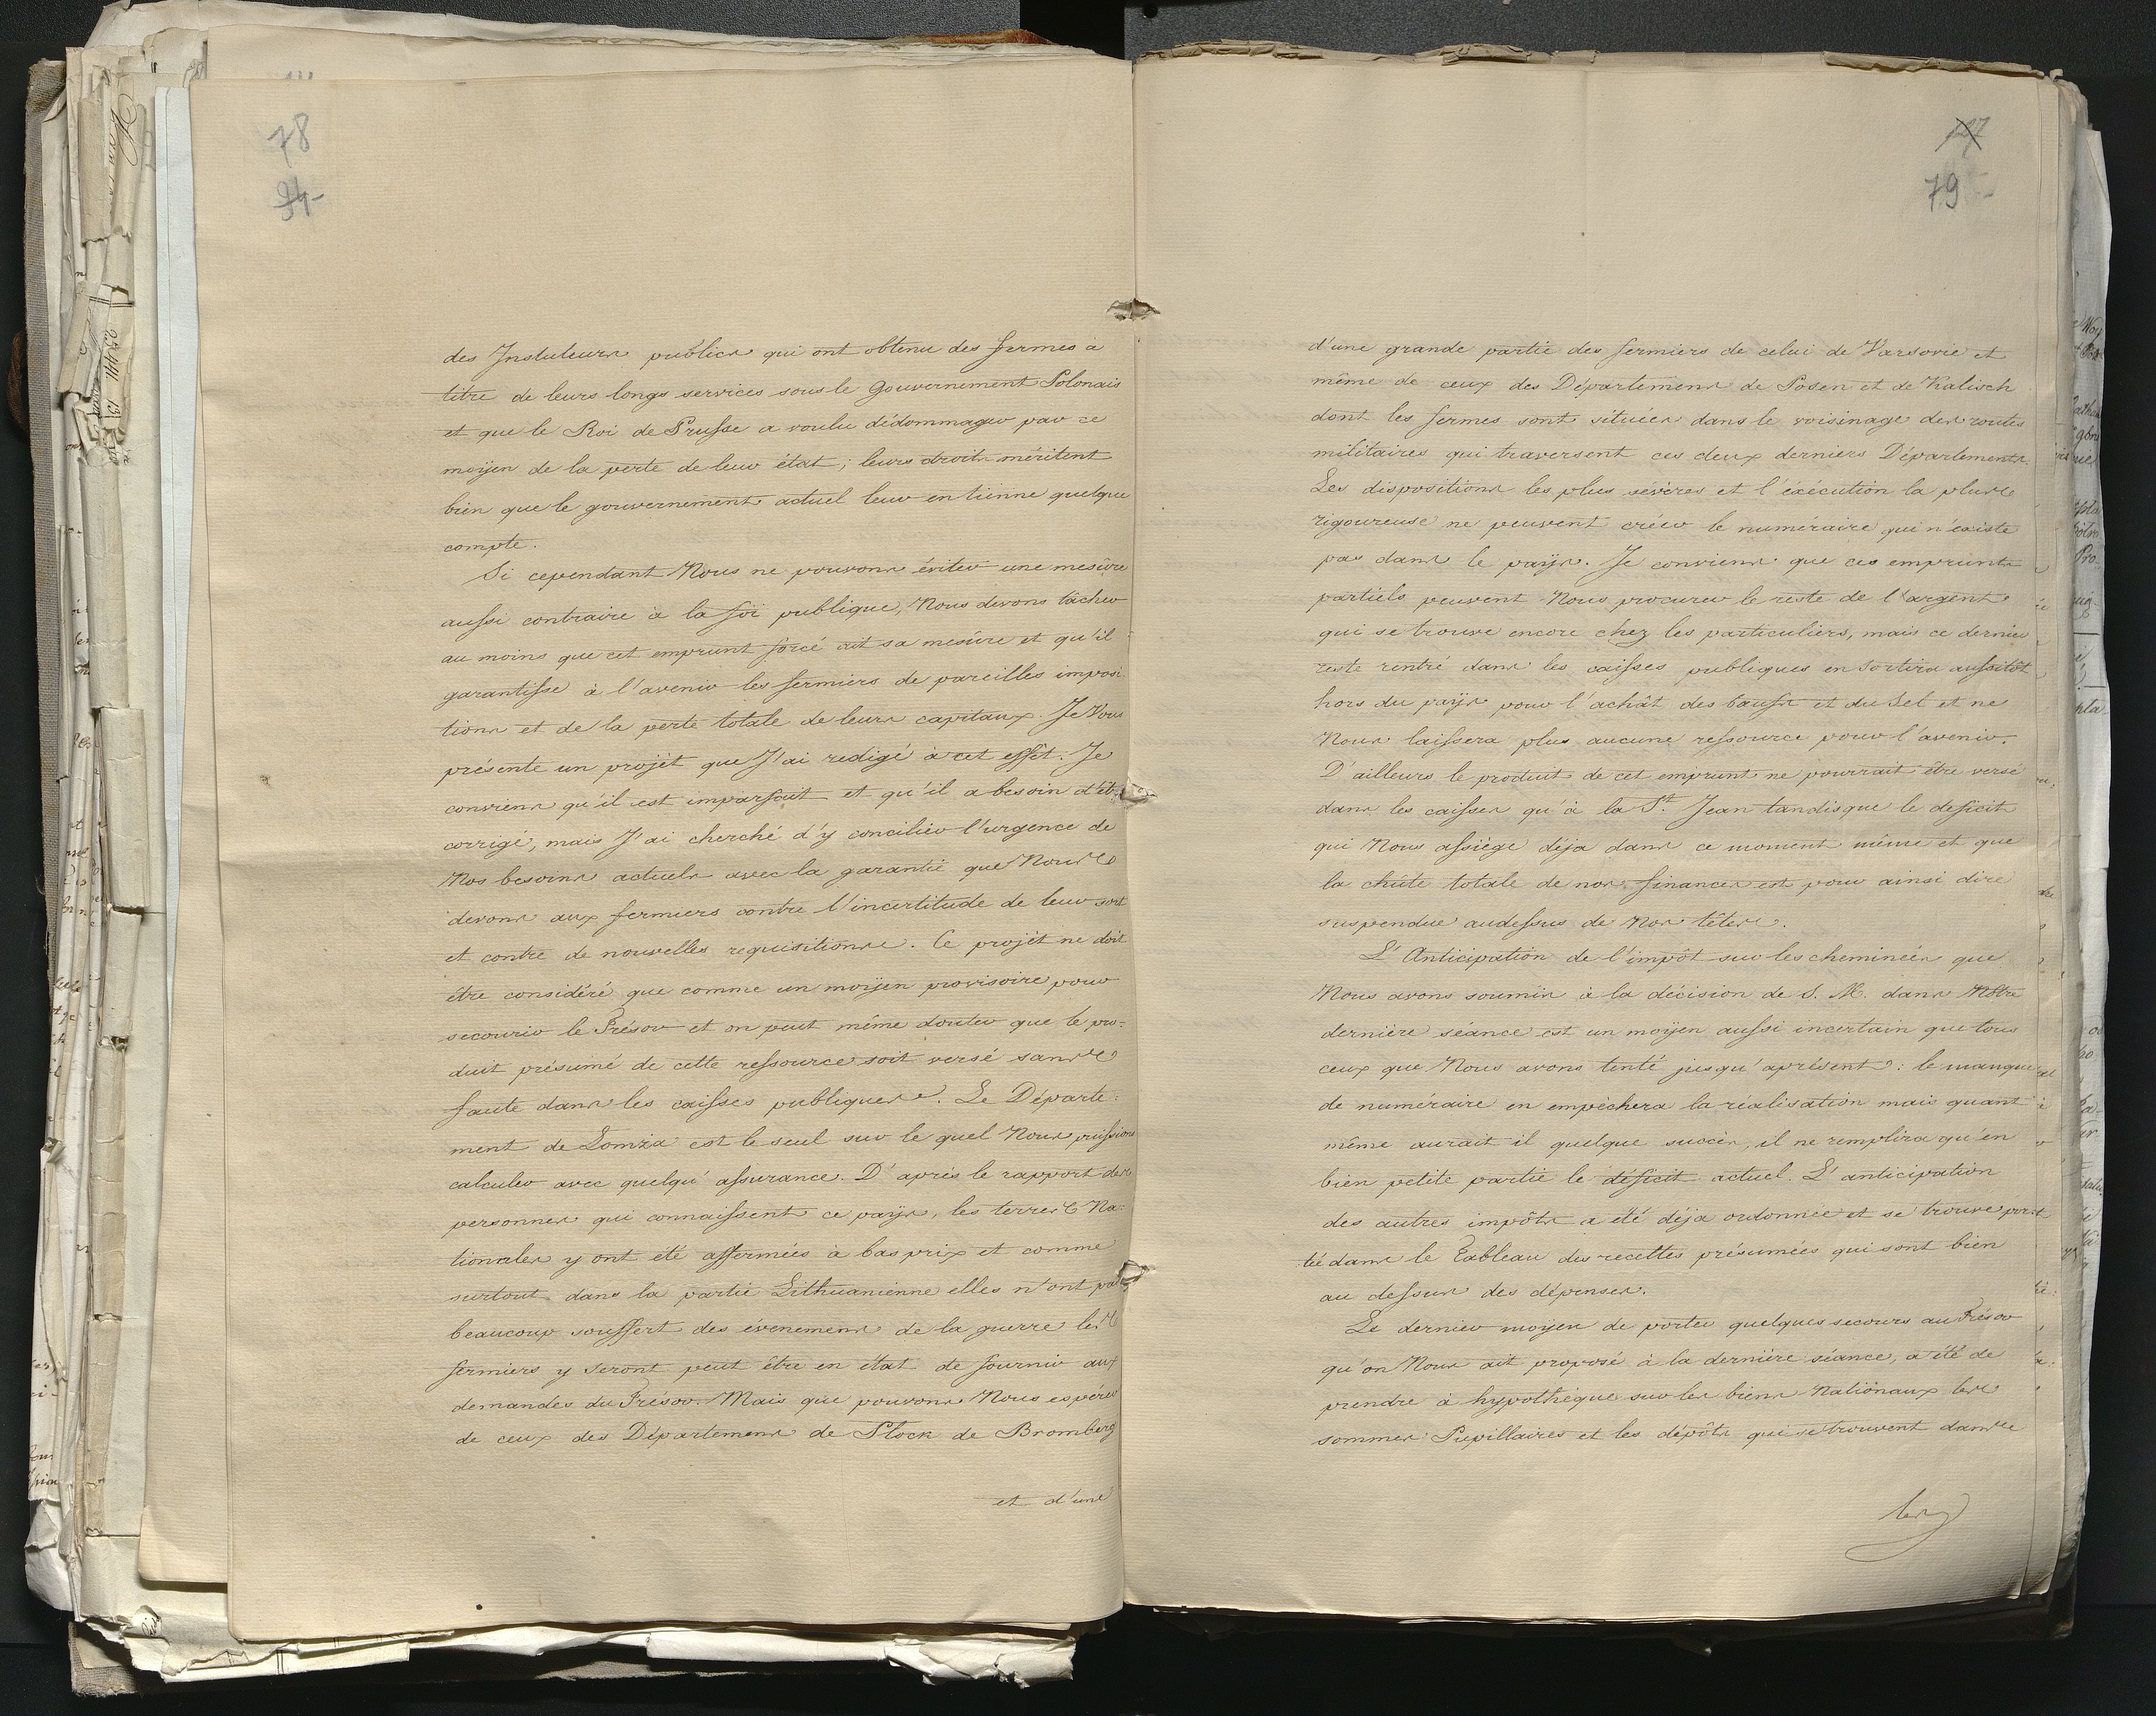 78
94
des Instuteurs publics qui ont obtenu des fermes à
titre de leurs longs services sous le Gouvernement Polonais
et que le Roi de Prusse a voulu dédommager par ce
moÿen de la perte de leur état; leurs droits méritent
bien que le gouvernement actuel leur en tienne quelque
compte.
Si cependant Nous ne pouvons éviter une mesûre
aussi contraire à la foi publique, Nous devons tâcher
au moins que cet emprunt forcé ait sa mesûre et qu'il
garantisse à l'avenir les fermiers de pareilles imposi
tions et de la perte totale de leurs capitaux. Je Vous
présente un projèt que J'ai redigé à cet effèt. Je
conviens qu'il est imparfait et qu'il a besoin d'êt
corrigé, mais J'ai cherché d'y concilier l'urgence de
Nos besoins actuels avec la garantie que Nous
devons aux fermiers contre l'incertitude de leur sort
et contre de nouvelles requisitions. Ce projèt ne doit
être considéré que comme un moÿen provisoire pour
secourir le Trésor et on peut même douter que le pro-
duit présumé de cette ressource soit versé sans
faute dans les caisses publiques. Le Départe-
ment de Lomza est le seul sur le quel Nous puissions
calculer avec quelqu'assurance. D'après le rapport des
personnes qui connaissent ce païs, les terres Na-
tionales y ont été affermées à bas prix et comme
surtout dans la partie Lithuanienne elles n'ont pas
beaucoup souffert des évenemens de la guerre les
fermiers y seront peut être en état de fournir aux
demandes du Trésor. Mais que pouvons Nous espérer
de ceux des Départemens de Plock de Bromberg
et d'une
187
79
d'une grande partie des fermiers de celui de Varsovie et
même de ceux des Départemens de Posen et de Kalisch
dont les fermes sont situées dans le voisinage des routes
militaires qui traversent ces deux derniers Départements.
Les dispositions les plus sévères et l'éxécution la plus
rigoureuse ne peuvent créer le numéraire qui n'existe
pas dans le païs. Je conviens que ces emprunts
partiels peuvent Nous procurer le reste de l'argent
qui se trouve encore chez les particuliers, mais ce dernier
reste rentré dans les caisses publiques en sortira aussitôt
hors du païs pour l'achât des bauss et du Sel et ne
Nous laissera plus aucune ressource pour l'avenir.
D'ailleurs le produit de cet emprunt ne pourrait être versé
dans les caisses qu'à la St. Jean tandisque le deficit
qui Nous assiège déja dans ce moment même et que
la chûte totale de nos finances est pour ainsi dire
suspendue audessus de Nos têtes.
L'Anticipation de l'impôt sur les cheminées que
Nous avons soumis à la décision de S. M. dans Nôtre
dernière séance est un moÿen aussi incertain que tous
ceux que Nous avons tenté jusqu'aprésent: le manque
de numéraire en empêchera la réalisation mais quant
même aurait il quelque succès, il ne remplira qu'en
bien petite partie le déficit actuel. L'anticipation
des autres impôts a été déja ordonnée et se trouve por-
tée dans le Tableau des recettes présumées qui sont bien
au dessus des dépenses.
Le dernier moÿen de porter quelques secours au Trésor
qu'on Nous ait proposé à la dernière séance, a été de
prendre à hypothéque sur les biens Nationaux les
sommes Pupillaires et les dépôts qui se trouvent dans
les